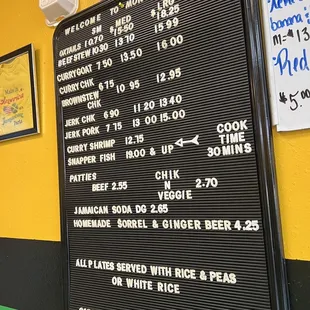 WELCOME TO MON
SM MED LRG
OXTAILS 10.70 15.50 18.25
BEEF STEW 10.30 13.70 15.99
CURRY GOAT 7.50 13.50 16.00
CURRY CHK 6.75
BROWNSTEW CHK 10.95 12.95
JERK CHK 6.90 11.20 13.40
JERK PORK 7.75 13.00 15.00
CURRY SHRIMP 12.75
SNAPPER FISH 19.00 & UP
COOK TIME 30 MINS
PATTIES
BEEF 2.55 CHIK N VEGGIE 2.70
JAMAICAN SODA DG 2.65
HOMEMADE SORREL & GINGER BEER 4.25
ALL PLATES SERVED WITH RICE & PEAS
OR WHITE RICE
banana
$5.00